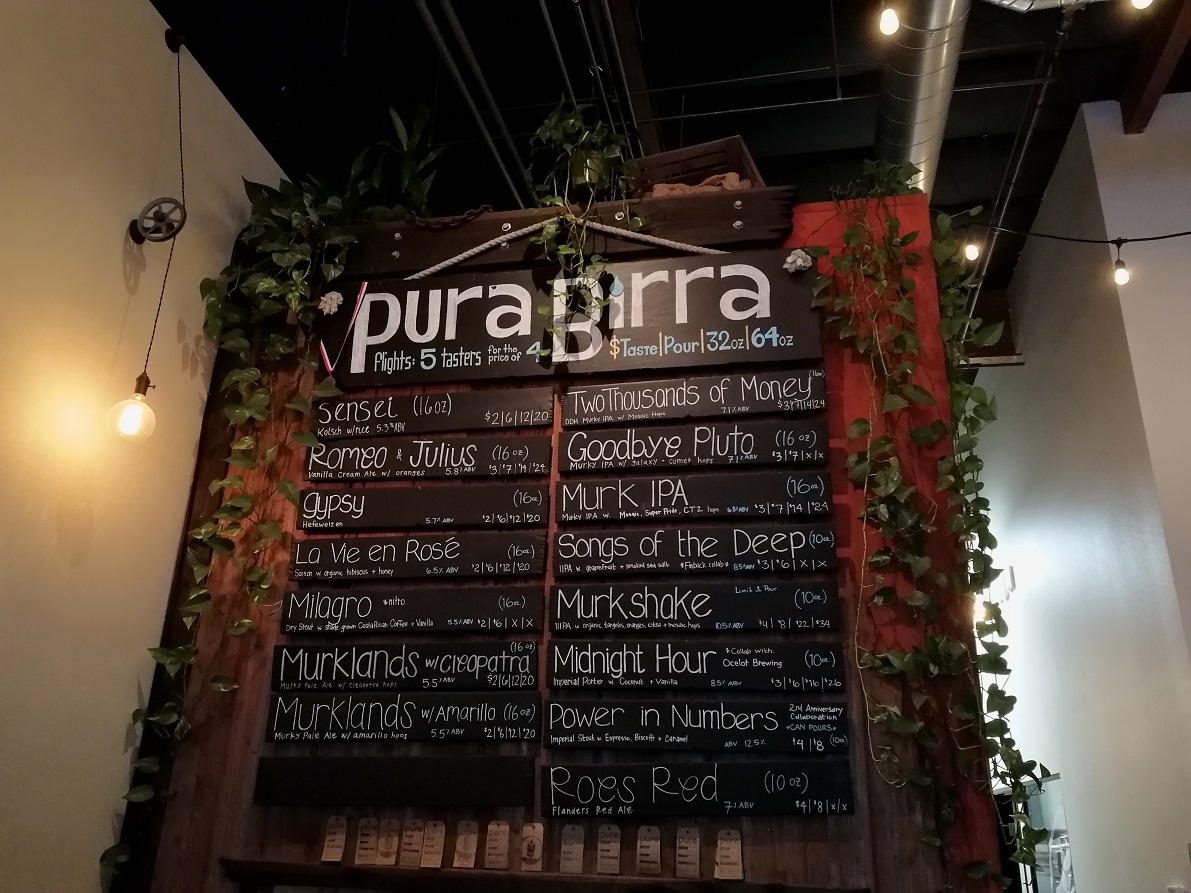 pura Birra
flights: 5 tasters for the price of 4
$Taste|Pour|32oz|64oz
Sensei (16oz)
Kolsch w/rice 5.3% ABV $2|6|12|20
Romeo & Julius (16 oz)
Vanilla Cream Ale w/ oranges 5.8% ABV $3|$7|$14|$24
gypsy (16oz)
Hefeweizen 5.7% ABV $2|$6|$12|$20
La Vie en Rosé (16oz)
Saison w organic hibiscus + honey 6.5% ABV $2|$6|$12|$20
Milagro *nitro (16oz)
Dry Stout w shade grown CostaRican Coffee + Vanilla 5.5% ABV $2|$6|X|X
Murklands w/Cleopatra (16 oz)
Murky Pale Ale w/ cleopatra hops 5.5% ABV $2|6|12|20
Murklands w/Amarillo (16oz)
Murky Pale Ale w/ amarillo hops 5.5% ABV $2|$6|$12|$20
Two Thousands of Money (16oz)
DDH Murky IPA w/ Mosaic Hops 7.1% ABV
Goodbye Pluto (16 oz)
Murky IPA w/ galaxy + comet hops 7.1% ABV $3|$7|X|X
Murk IPA (16oz)
Murky IPA w. Mosaic, Super Pride, CTZ hops ABV $3|$7|$14|$24
Songs of the Deep (10oz)
IIPA w. grapefruit + smoked sea salt *Finback collab* 8.5% ABV $3|$6|X|X
Murkshake Limit 1 Pour (10oz)
IIIPA w. organic tangelos, oranges, citra + mosaic hops 10.5% ABV $4|$8|$22|$34
Midnight Hour *Collab with: Ocelot Brewing (10oz)
Imperial Porter w Coconut + Vanilla 8.5% ABV $3|$6|$16|$26
Power in Numbers 2nd Anniversary
Collaboration
*CAN POURS*
Imperial Stout w. Espresso, Biscotti + Caramel ABV 12.5% $4|$8 (10oz)
Roes Red (10 oz)
Flanders Red Ale 7% ABV $4|$8|x|x